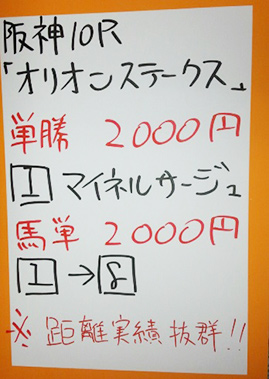 阪神10R
「オリオンステークス」
単勝 2000円
1 マイネルサージュ
馬単 2000円
1→8
※ 距離実績抜群!!